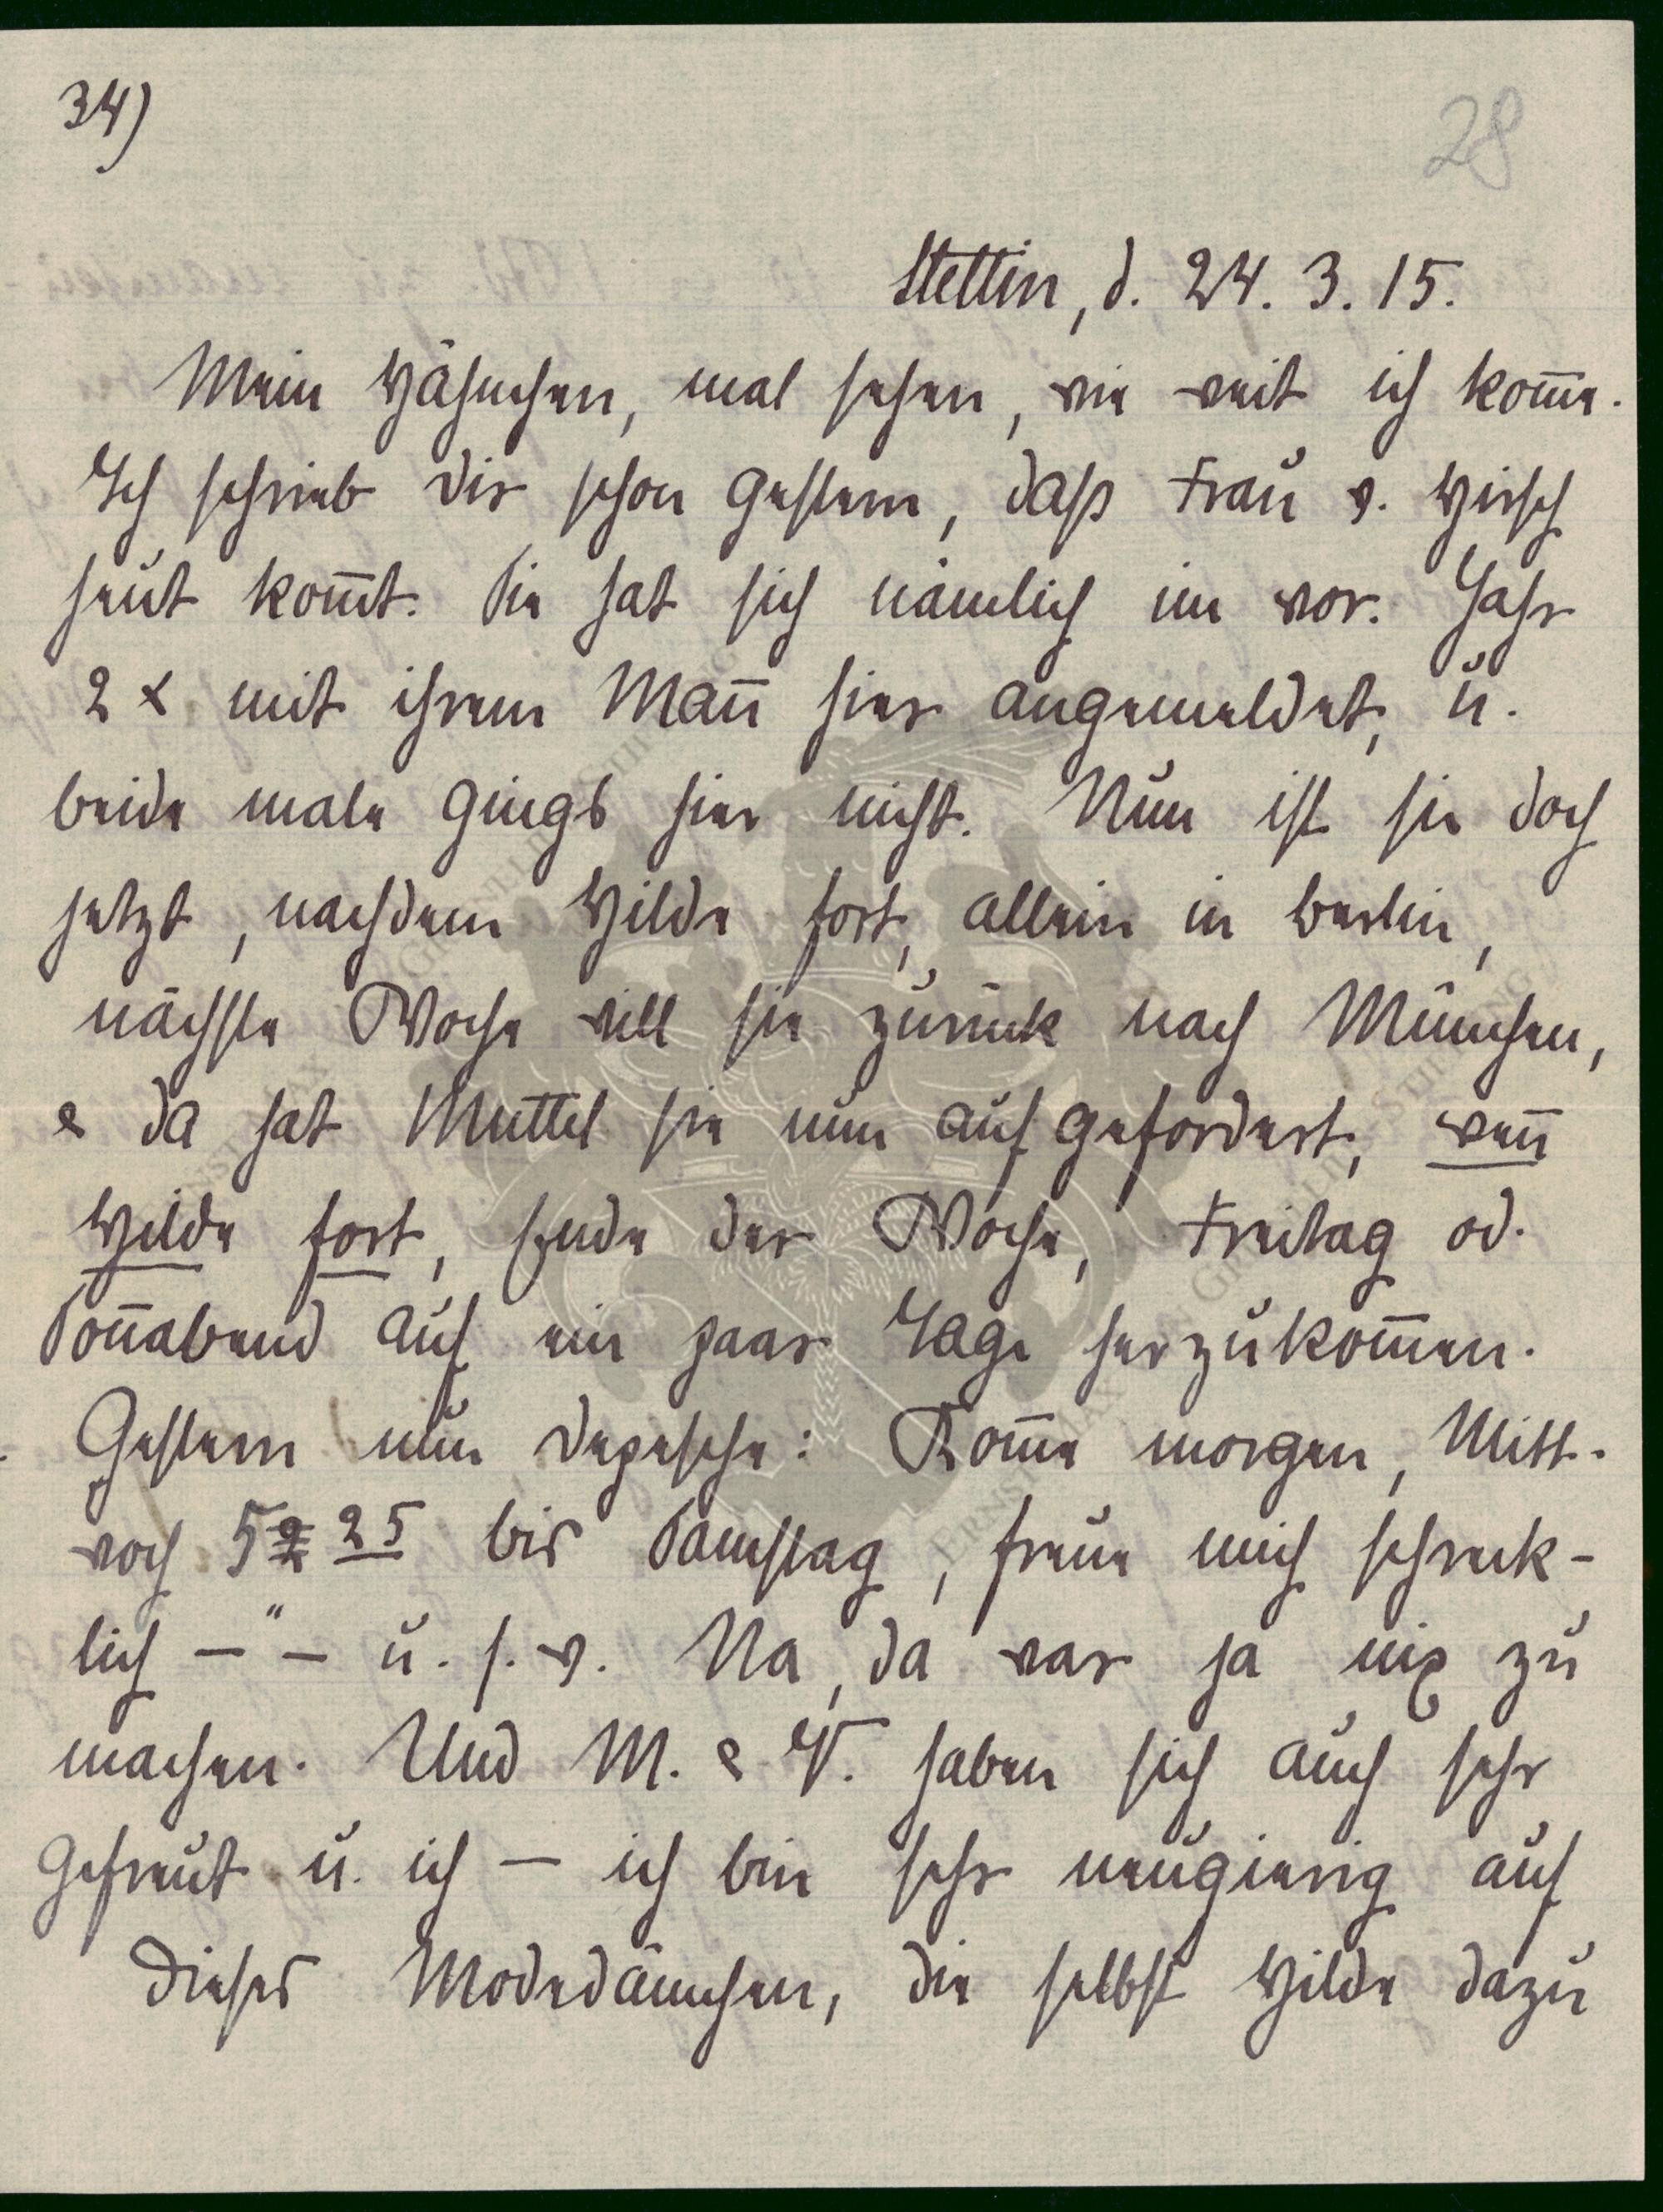 34)
28
Stettin, d. 24. 3. 15.
Mein Häschen, mal sehen, wie weit ich kom̄e.
Ich schrieb dir schon gestern, daß Frau v. Hirsch
heut kom̄t. Sie hat sich nämlich im vor. Jahr
2 x mit ihrem Man̄ hier angemeldet, u.
beide male gings hier nicht. Nun ist sie doch
jetzt, nachdem Hilde fort, allein in Berlin,
nächste Woche will sie zurück nach München,
& da hat Muttel sie nun aufgefordert, wen̄
Hilde fort, Ende der Woche, Freitag od.
Son̄abend auf ein paar Tage herzukom̄en.
Gestern nun Depesche: Kom̄e morgen, Mitt-
woch 5 25 bis Samstag, freue mich schreck-
lich —"— u. s. w. Na, da war ja nix zu
machen. Und M. & V. haben sich auch sehr
gefreut u. ich — ich bin sehr neugierig auf
dieses Modedämchen, die selbst Hilde dazu